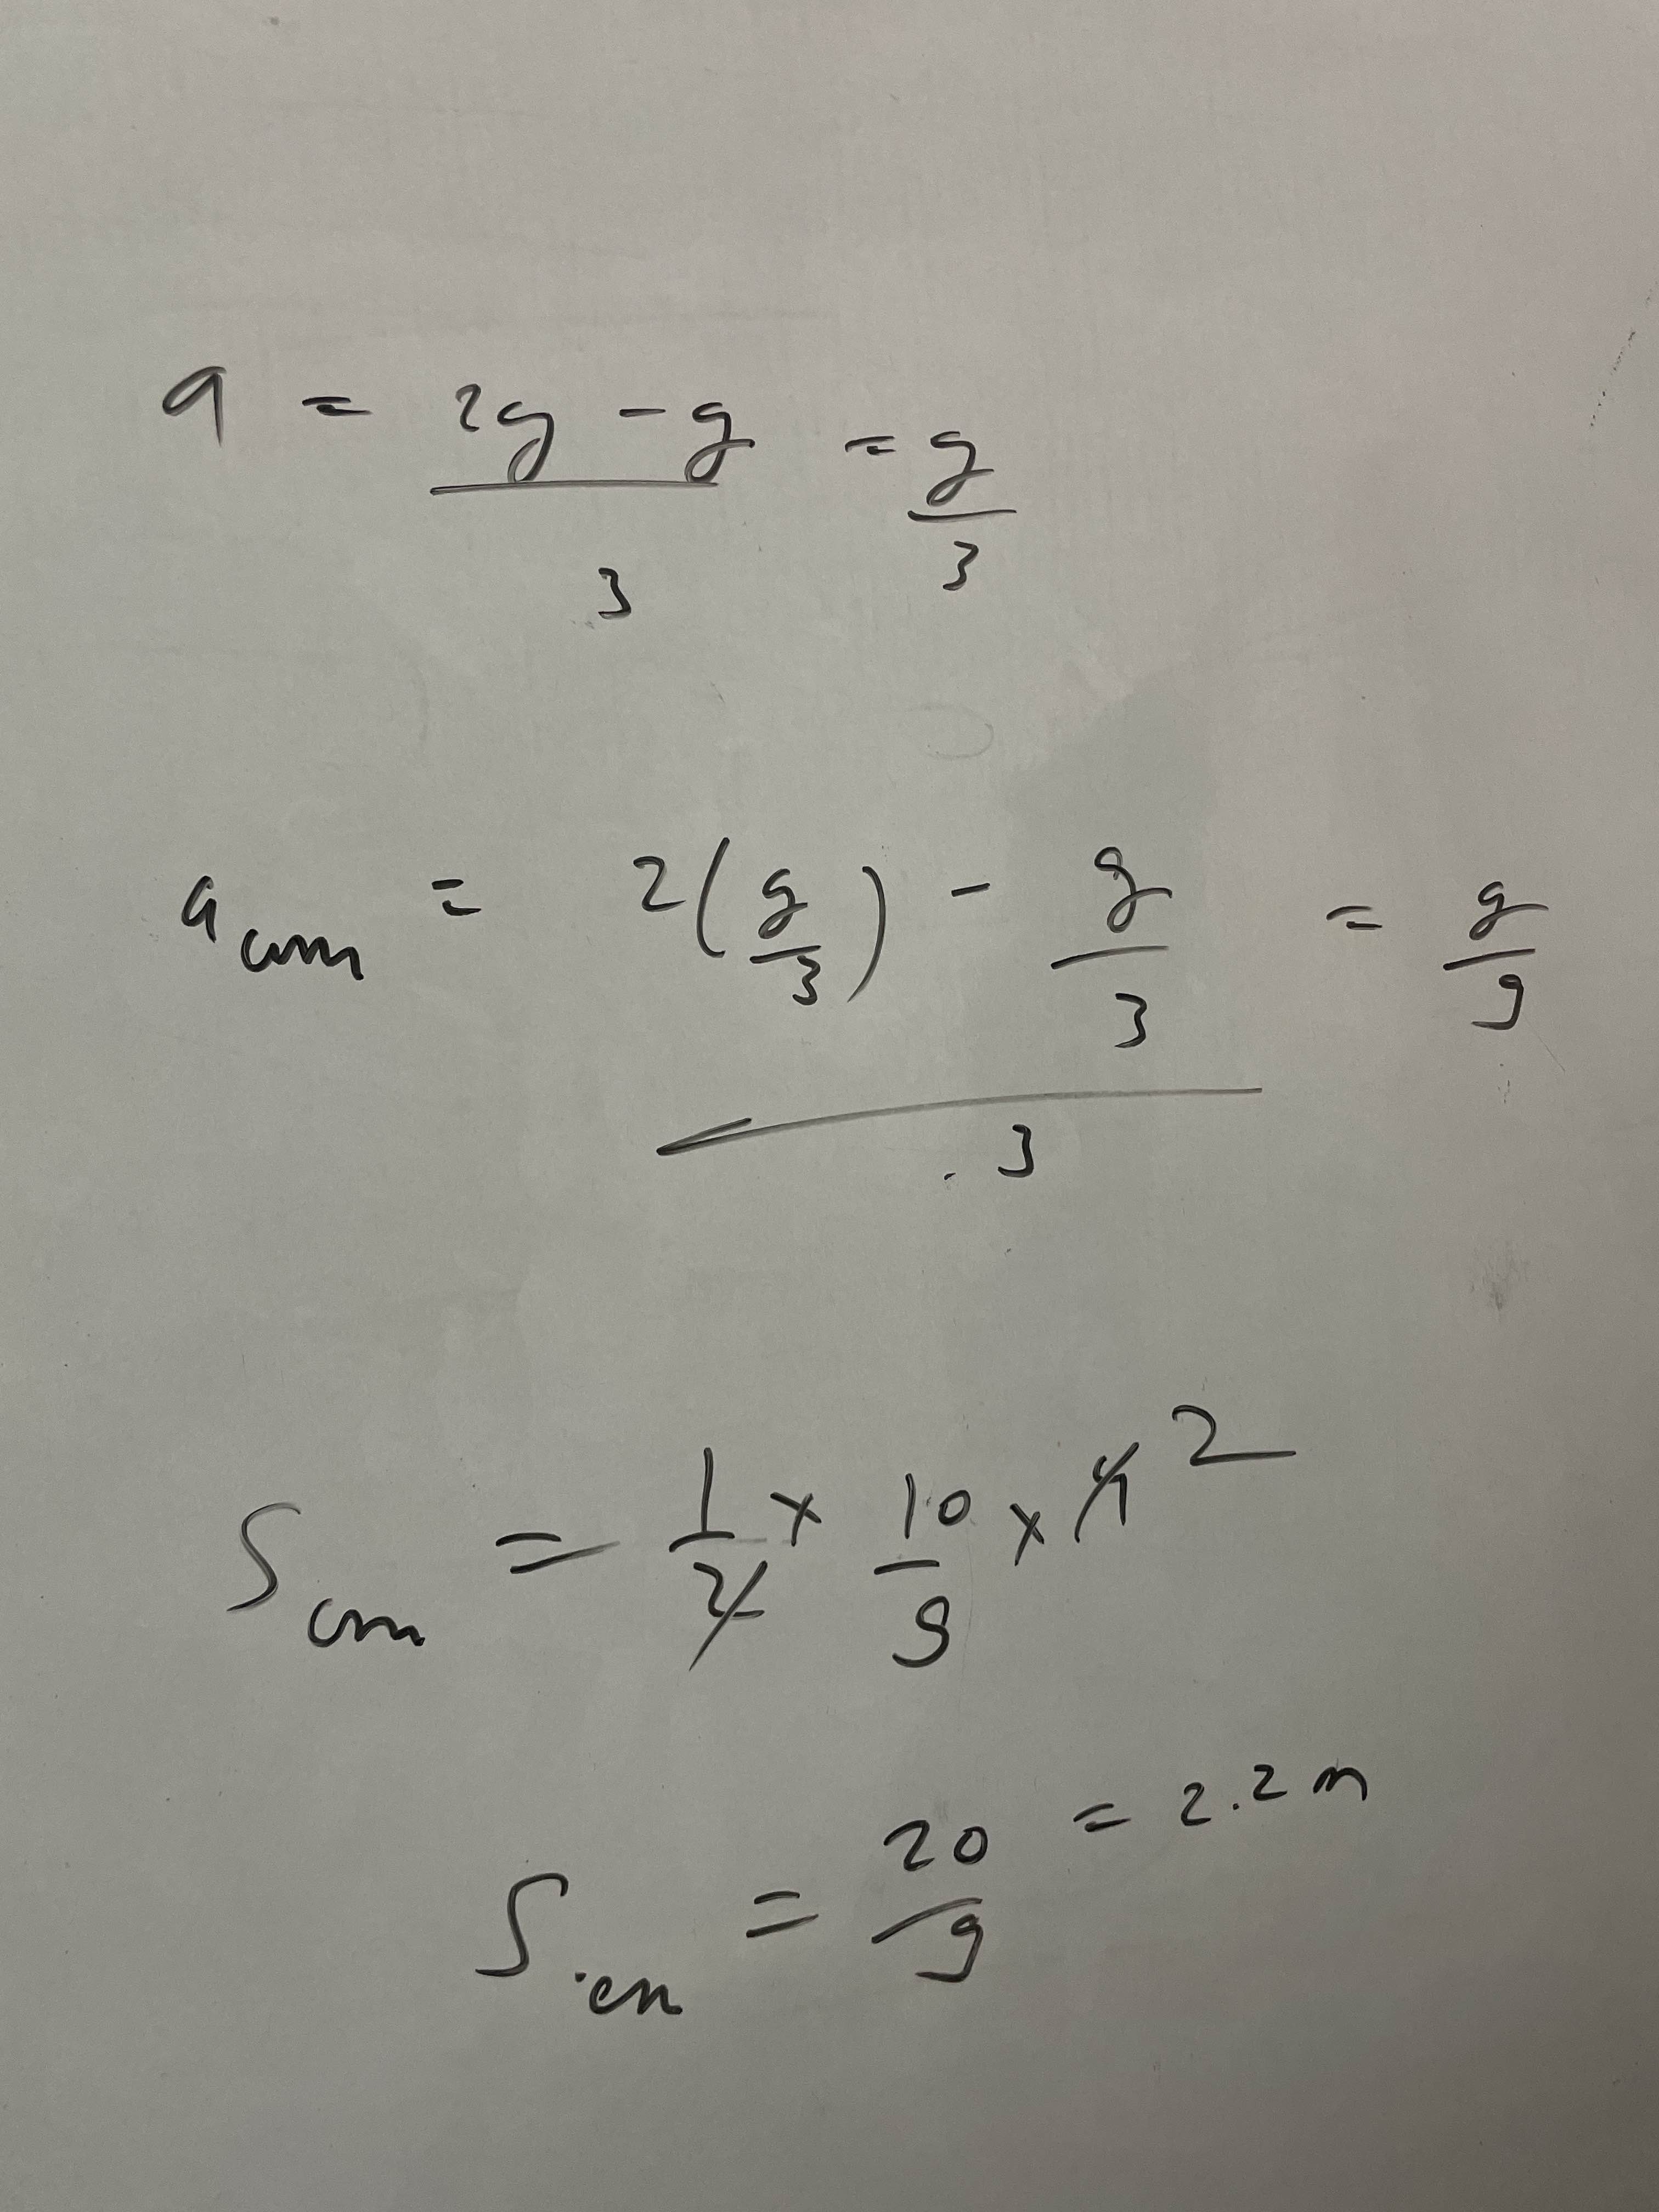 a = (2g - g)/3 = g/3
a cm = (2(g/3) - g/3)/3 = g/9
S cm = 1/2 × 10/9 × 4 2
S cm = 20/9 = 2.2 m